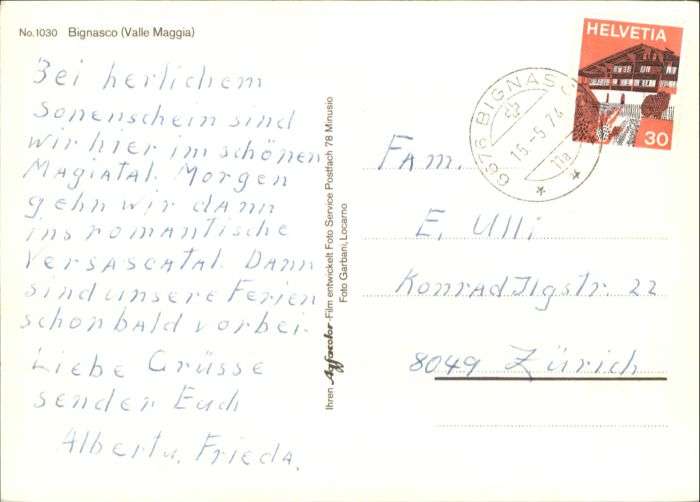 No. 1030 Bignasco (Valle Maggia)
Bei herlichem
Sonenschein sind
wir hier im schönen
Magiatal. Morgen
gehn wir dann
ins romantische
Versascatal. Dann
sind unsere Ferien
schon bald vorbei.
Liebe Grüsse
sender Euch
Albert u. Frieda.
Ihren Agfacolor-Film entwickelt Foto Service Postfach 78 Minusio
Foto Garbani, Locarno
HELVETIA
30
6676 BIGNASCO
15.-5.74
11a
Fam.
E. Ulli
Konrad Ilgstr. 22
8049 Zürich